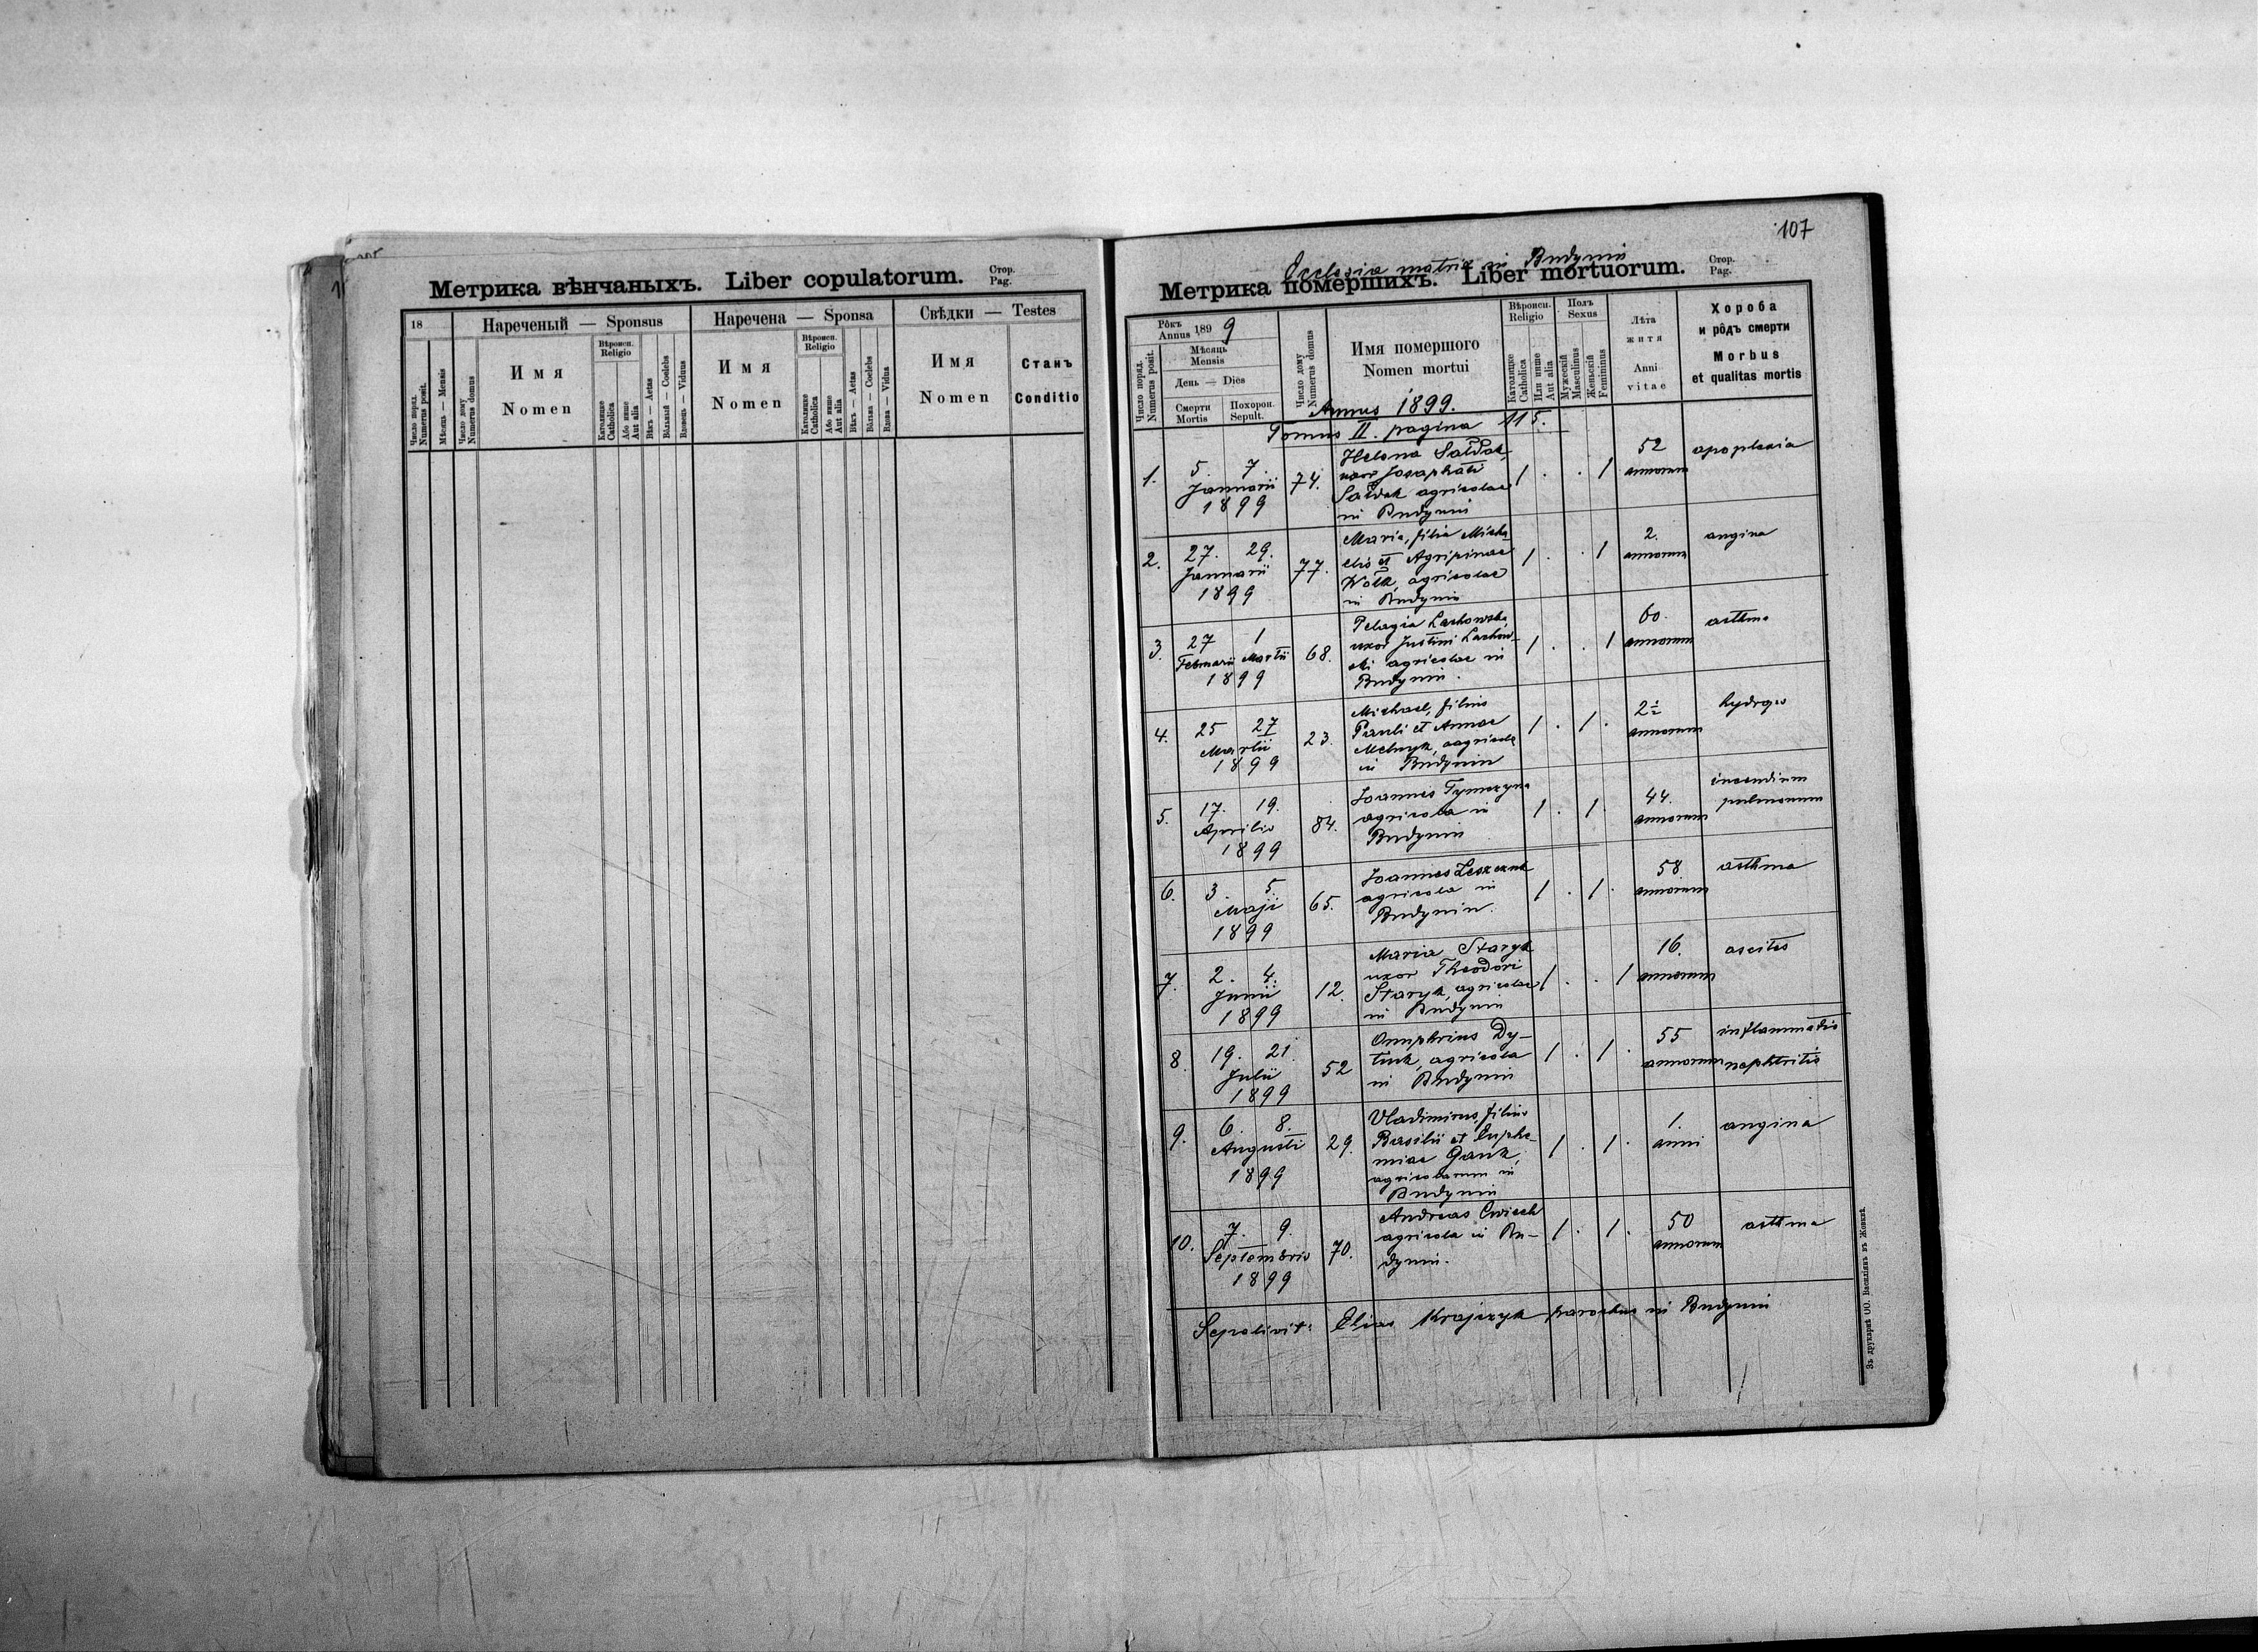 Метрика вѣнчаныхъ. Liber copulatorum.
Стор.
Pag.
18
Нареченый — Sponsus
Наречена — Sponsa
Свѣдки — Testes
Число поряд.
Numerus posit.
Мѣсяць — Mensis
Число дому
Numerus domus
Имя
Nomen
Вѣроисп.
Religio
Католицке
Catholica
Або инше
Aut alia
Вѣкъ — Aetas
Вôльный — Coelebs
Вдовець — Viduus
Имя
Nomen
Вѣроисп.
Religio
Католицке
Catholica
Або инше
Aut alia
Вѣкъ — Aetas
Вôльна — Coelebs
Вдова — Vidua
Имя
Nomen
Станъ
Conditio
107
Ecclesia matrix in Budynin
Метрика помершихъ. Liber mortuorum.
Стор.
Pag.
Рôкъ
Annus 1899
Число поряд.
Numerus posit.
Мѣсяць
Mensis
День — Dies
Смерти
Mortis
Похорон.
Sepult.
Число дому
Numerus domus
Имя помершого
Nomen mortui
Вѣроисп.
Religio
Католицке
Catholica
Или инше
Aut alia
Полъ
Sexus
Мужескій
Masculinus
Женьскій
Femininus
Лѣта
житя
Anni
vitae
Хороба
и рôдъ смерти
Morbus
et qualitas mortis
Annus 1899.
Tomus II. pagina 115.
1. 5. 7. Januarii 1899 74. Helena
uxor Josaphati
agricolae
in Budynin
1 . . 1 52 annorum apoplexia
2. 27. 29. Januarii 1899 77. Maria, filia Micha
elis et Agripinae
Wolk, agricolae
in Budynin
1 . . 1 2. annorum angina
3. 27 Februarii 1 Martii 1899 68. Pelagia Lachowska,
uxor Justini Lachow-
ski agricolae in
Budynin.
1 . . 1 60. annorum asthma
4. 25 27 Martii 1899 23. Michael, filius
Pauli et Annae
Melnyk, agricola
in Budynin
1 . 1 . 2½ annorum hydrops
5. 17. 19. Aprilis 1899 84. Joannes Tymczyna
agricola in
Budynin
1 . 1 . 44. annorum incendium
pulmonum
6. 3. 5. Maji 1899 65. Joannes Leszczuk
agricola in
Budynin.
1 . 1 . 58 annorum asthma
7. 2. 4. Junii 1899 12. Maria Staryk
uxor Theodori
Staryk, agricolae
in Budynin
1 . . 1 16. annorum ascites
8. 19. 21. Julii 1899 52 Onuphrius Dy-
tiuk, agricola
in Budynin
1 . 1 . 55 annorum inflammatio
nephritis
9. 6. 8. Augusti 1899 29. Vladimirus, filius
Basilii et Euphe-
miae Gauk,
agricolarum in
Budynin
1 . 1 . 1. anni angina
10. 7. 9. Septembris 1899 70. Andreas Cwiech
agricola in Bu-
dynin.
1 . 1 . 50 annorum asthma
Sepelivit: Elias Krajczyk parochus in Budynin
Зъ друкарнѣ ОО. Василіянъ въ Жовквѣ.